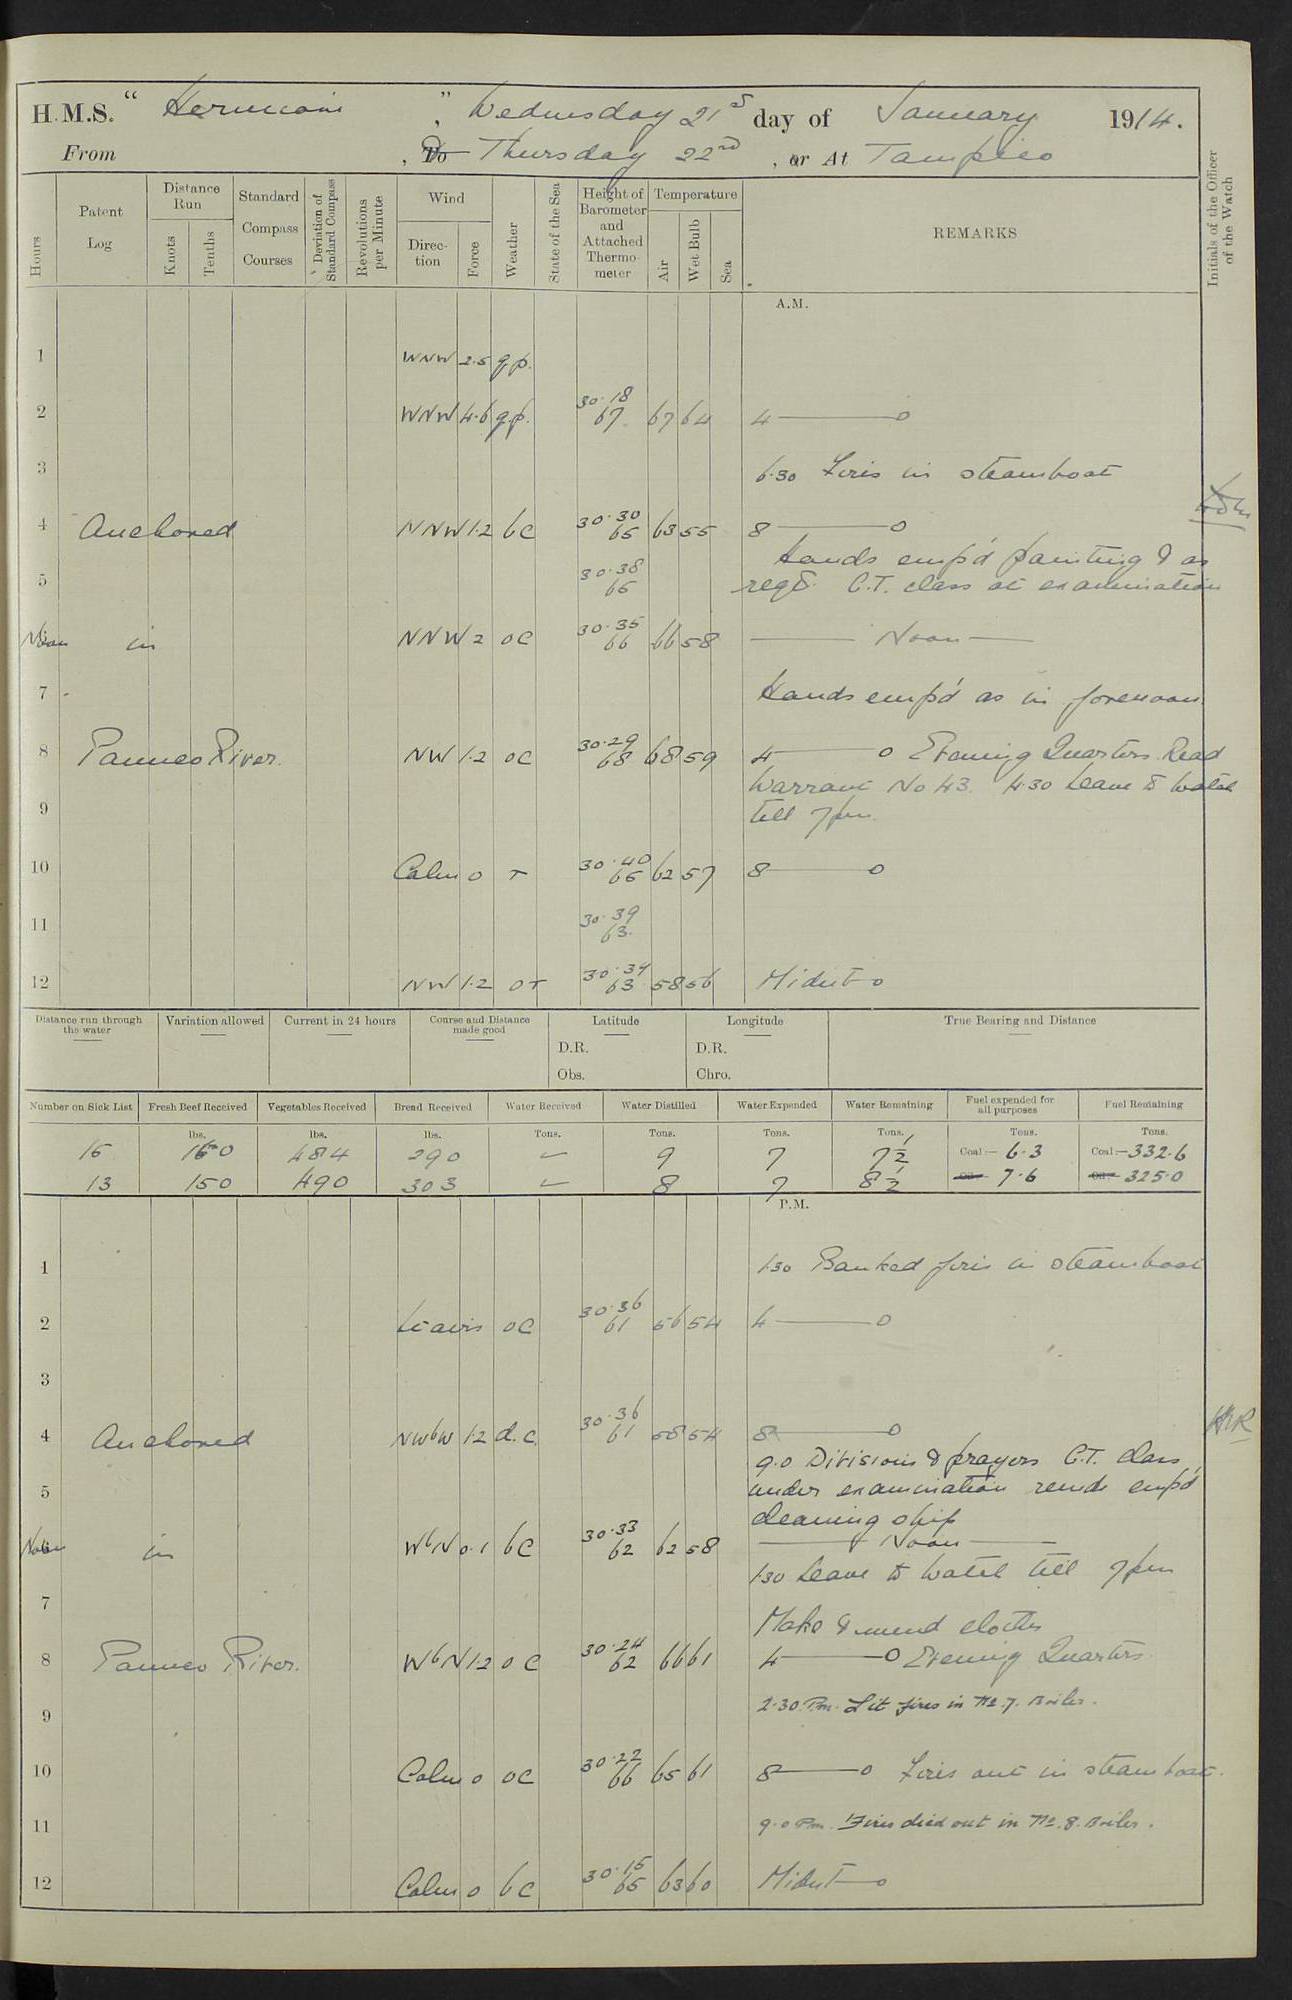 H.M.S. " Hermione ", Wednesday 21st day of January 1914.
From , To Thursday 22nd , or At Tampico
Hours
Patent Log
Distance Run
Knots
Tenths
Standard Compass Courses
Deviation of Standard Compass
Revolutions per Minute
Wind
Direction
Force
Weather
State of the Sea
Height of Barometer and Attached Thermometer
Temperature
Air
Wet Bulb
Sea
REMARKS
Initials of the Officer of the Watch
A.M.
1 WNW 2.5 q.p.
2 WNW 4.6 q.p. 30.18 67 67 64 4 ——— o
3 6.30 Fires in steamboat
4 Anchored NNW 1.2 bc 30.30 65 63 55 8 ——— o
Hands emp'd painting & as
5 30.38 65 reqd. C.T. class at examination
Noon in NNW 2 oc 30.35 66 66 58 ——— Noon ———
7 Hands emp'd as in forenoon
8 Panuco River. NW 1.2 oc 30.29 68 68 59 4 ——— o Evening Quarters. Read
Warrant No 43. 4.30 Leave to watch
9 till 7pm
10 Calm o r 30.40 65 62 57 8 ——— o
11 30.39 63.
12 NW 1.2 or 30.34 63 58 56 Midnt — o
Distance run through the water
Variation allowed
Current in 24 hours
Course and Distance made good
Latitude
D.R.
Obs.
Longitude
D.R.
Chro.
True Bearing and Distance
Number on Sick List
Fresh Beef Received
Vegetables Received
Bread Received
Water Received
Water Distilled
Water Expended
Water Remaining
Fuel expended for all purposes
Fuel Remaining
lbs. lbs. lbs. Tons. Tons. Tons. Tons. Tons. Tons.
15 150 484 290 – 9 7 7½ Coal:— 6.3 Coal:— 332.6
13 150 490 303 – 8 7 8½ Oil:— 7.6 Oil:— 325.0
P.M.
1 1.30 Banked fires in steamboat
2 Lt airs oc 30.36 61 56 54 4 ——— o
3
4 Anchored NWbW 1.2 d.c. 30.36 61 58 54 8 ——— o
9.0 Divisions & prayers C.T. class
5 under examination remdr emp'd
cleaning ship
Noon in WbN 0.1 bc 30.33 62 62 58 ——— Noon ———
1.30 Leave to watch till 7pm
7 Make & mend clothes
8 Panuco River. WbN 1.2 oc 30.24 62 66 61 4 ——— o Evening Quarters
9 2.30 P.m. Lit fires in No. 7. Boiler.
10 Calm o oc 30.22 66 65 61 8 ——— o Fires out in steamboat.
11 9.0 P.m. Fires died out in No. 8. Boiler.
12 Calm o bc 30.15 65 63 60 Midnt — o